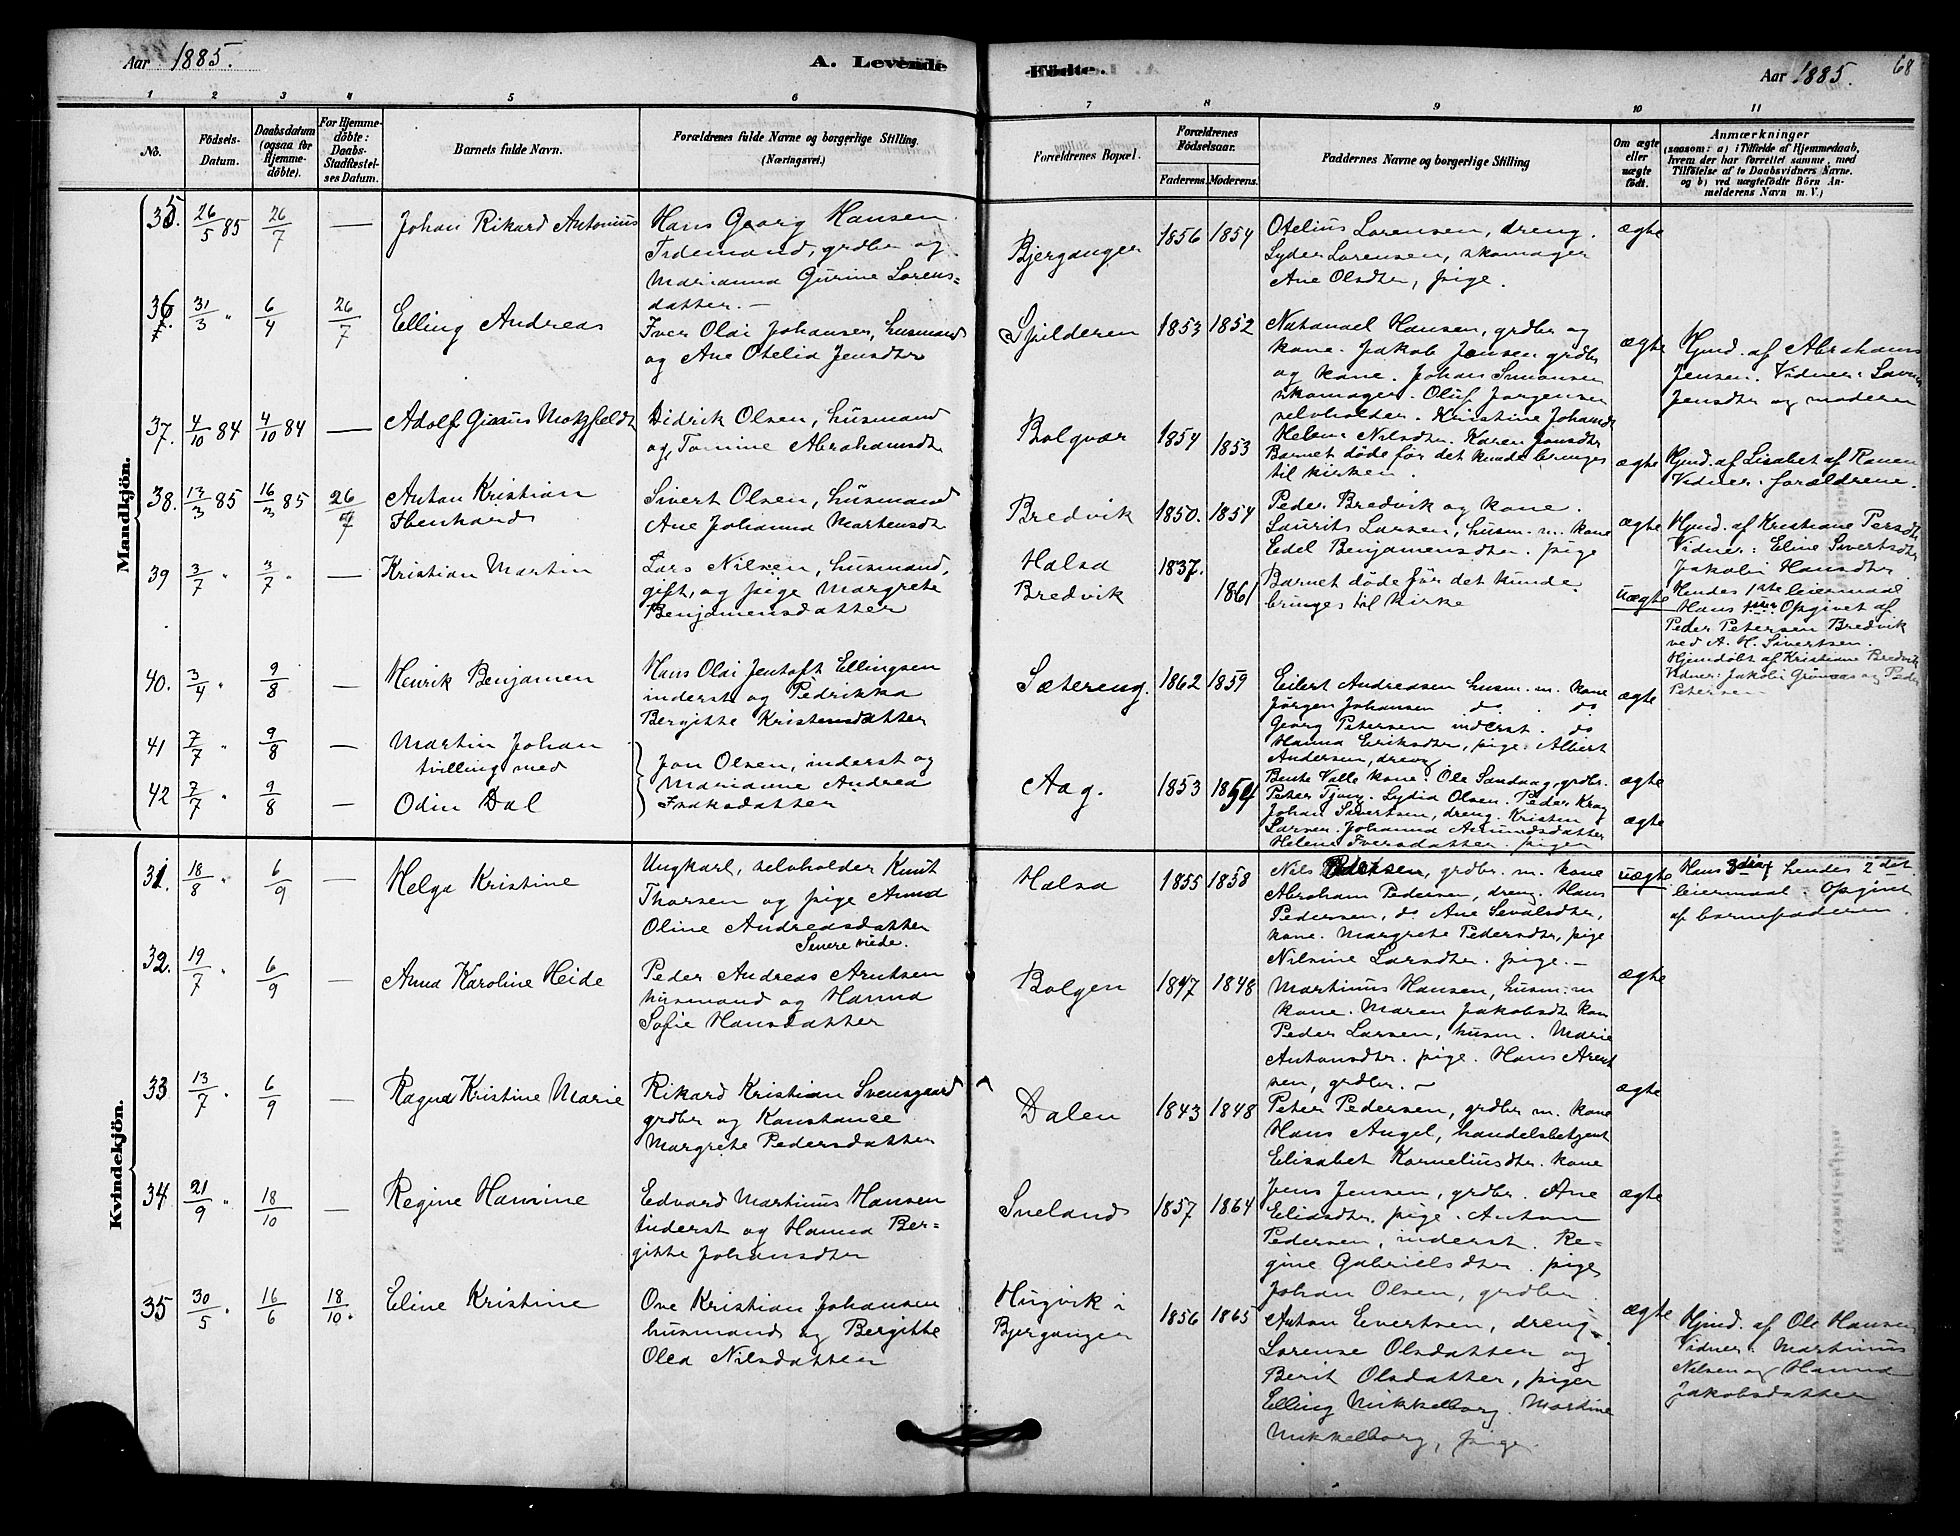 Aar 1885.
A. Levende
Födte.
Aar 1885.
68
1 2 3 4 5 6 7 8 9 10 11
No.
Födsels-
Datum.
Daabsdatum
(ogsaa for
Hjemme-
döbte).
For Hjemme-
döbte:
Daabs-
Stadfæstel-
ses Datum.
Barnets fulde Navn.
Forældrenes fulde Navne og borgerlige Stilling.
(Næringsvei.)
Forældrenes Bopæl.
Forældrenes
Födselsaar.
Faderens. Moderens.
Faddernes Navne og borgerlige Stilling
Om ægte
eller
uægte
födt.
Anmærkninger
(saasom: a) i Tilfælde af Hjemmedaab,
hvem der har forrettet samme, med
Tilföielse af to Daabsvidners Navne.
og b) ved uægtefödte Börn An-
melderens Navn m. V.)
Mandkjön.
35. 26/5 85 26/7 — Johan Rikard Antonius
Hans Georg Hansen
Tidemand, grdbr og
Marianna Gurine Lorens-
datter. —
Bjerganger 1856 1854
Otelius Lorensen, dreng.
Lyder Lorensen, skomager
Ane Olsdter, pige.
ægte
36. 31/3 " 6/4 26/7 Elling Andreas
Iver Olai Johansen, husmand
og Ane Otelia Jensdter
Spilderen 1853 1852
Natanael Hansen, grdbr og
kone. Jakob Jensen grdbr
og kone. Johan Simonsen
skomager. Oluf Jørgensen
selvholder. Kristine Johansd
Helene Nilsdter. Karen Jonsdtr
ægte
Hjmd. af Abrahams
Jensen. Vidner:
Jensdtr og moderen
37. 4/10 84 4/10 84 — Adolf Giæus Motzfeldt
Didrik Olsen, husmand
og Tomine Abrahamsdtr
Bolgvær 1854 1853
Barnet døde før det kunde bringes
til kirken.
ægte
Hjmd. af Lisabet af Ranen
Vidner: forældrene.
38. 13/3 85 16/3 85 26/7 Anton Kristian
Ebenhard
Sivert Olsen, husmand
Ane Johanna Martensdtr
Bredvik 1850. 1854
Peder Bredvik og kone.
Laurits Larsen, husm. m. kone
Eedel Benjamensdter. pige
ægte
Hjmd. af Kristiane Persdtr
Vidner: Eline Sivertsdtr
Jakobi Hansdtr.
39 3/7 " 3/7 " — Kristian Martin
Lars Nilsen, husmand,
gift, og pige Margrete
Benjamensdatter
Halsa
Bredvik 1837. 1861
Barnet døde før det kunde
bringes til Kirke
uægte
Hendes 1ste leiermaal
Hans 1ste. Opgivet af
Peder Petersen Bredvik
ved A. H. Sivertsen.
Hjemdøbt af Kristiane Bredvik
Vidner: Jakobi Grønaas og Peder
Petersen
40. 3/4 " 9/8 — Henrik Benjamen
Hans Olai Jentoft Ellingsen
inderst og Pedrikka
Bergitte Kristensdatter
Sætereng. 1862 1859
Eilert Andreasen husm. m. kone
Jørgen Johansen do . do
Georg Petersen inderst. do
Hanna Eriksdtr, pige. Albert
Andersen, dreng
ægte
41 7/7 " 9/8 — Martin Johan
tvilling med
42 7/7 " 9/8 — Odin Dal
Jon Olsen, inderst og
Marianne Andrea
Isaksdatter
Aag. 1853 1854
Bente Valle kone. Ole Sandvag, grdbr.
Peter Tjong. Lydia Olsen. Peder Krag
Johan Sivertsen, dreng. Kristen
Larsen. Johanna Amundsdatter
Helene Iversdatter. piger
ægte
ægte
Kvindekjön.
31. 18/8 " 6/9 — Helga Kristine
Ungkarl, selvholder Knut
Thorsen og pige Anna
Oline Andreasdatter
Senere viede.
Halsa 1855 1858
Nils Pedersen, grdbr. m. kone
Abraham Pedersen, dreng. Hans
Pedersen, do Ane Sevalsdtr,
kone. Margrete Pedersdtr, pige
Nilsine Larsdtr. pige. —
uægte
Hans 3die hendes 2det
leiermaal. Opgivet
af barnefaderen.
32. 19/7 " 6/9 — Anna Karoline Heide
Peder Andreas Arntsen
husmand og Hanna
Sofie Hansdatter
Bolgen 1847 1848
Martinus Hansen, husm. m
kone. Maren Jakobsdtr kone
Peder Larsen, husm. Marie
Antonsdtr. pige. Hans Arent
sen, grdbr. —
ægte
33 13/7 " 6/9 — Ragna Kristine Marie
Rikard Kristian Svensgaard
grdbr og Konstance
Margrete Pedersdatter
Dalen 1843 1848
Peter Pedersen, grdbr m. kone
Hans Angel, handelsbetjent
Elisabet Korneliusdtr. kone
ægte
34 21/9 " 18/10 — Regine Hansine
Edvard Martinus Hansen
inderst og Hanna Ber-
gitte Johansdtr
Sneland 1857 1864
Jens Jensen, grdbr. Ane
Eliasdtr. pige. Anton
Pedersen, inderst. Re-
gine Gabrielsdtr. pige
Johan Olsen, grdbr
ægte
35 30/5 " 16/6 18/10. Eline Kristine
Ove Kristian Johansen
husmand og Bergitte
Olea Nilsdatter
Hugvik i
Bjerganger 1856 1865
Anton Evertsen, dreng.
Lorense Olsdatter og
Berit Olsdatter, piger
Elling Mikkelborg. Martine
Mikkelborg, pige.
ægte
Hjmd. af Ole Hansen
Vidner: Martinus
Nilsen og Hanna
Jakobsdatter